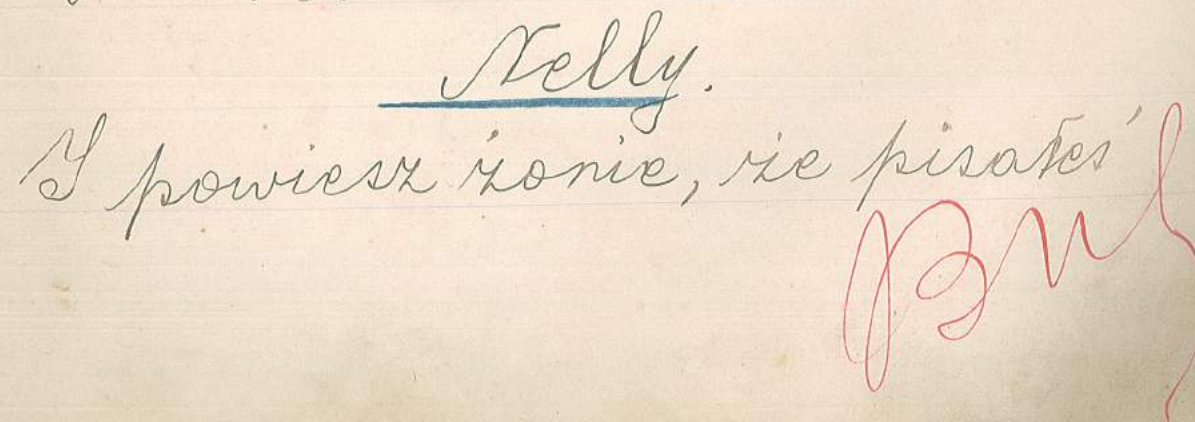 Nelly.
I powiesz żonie, że pisałeś